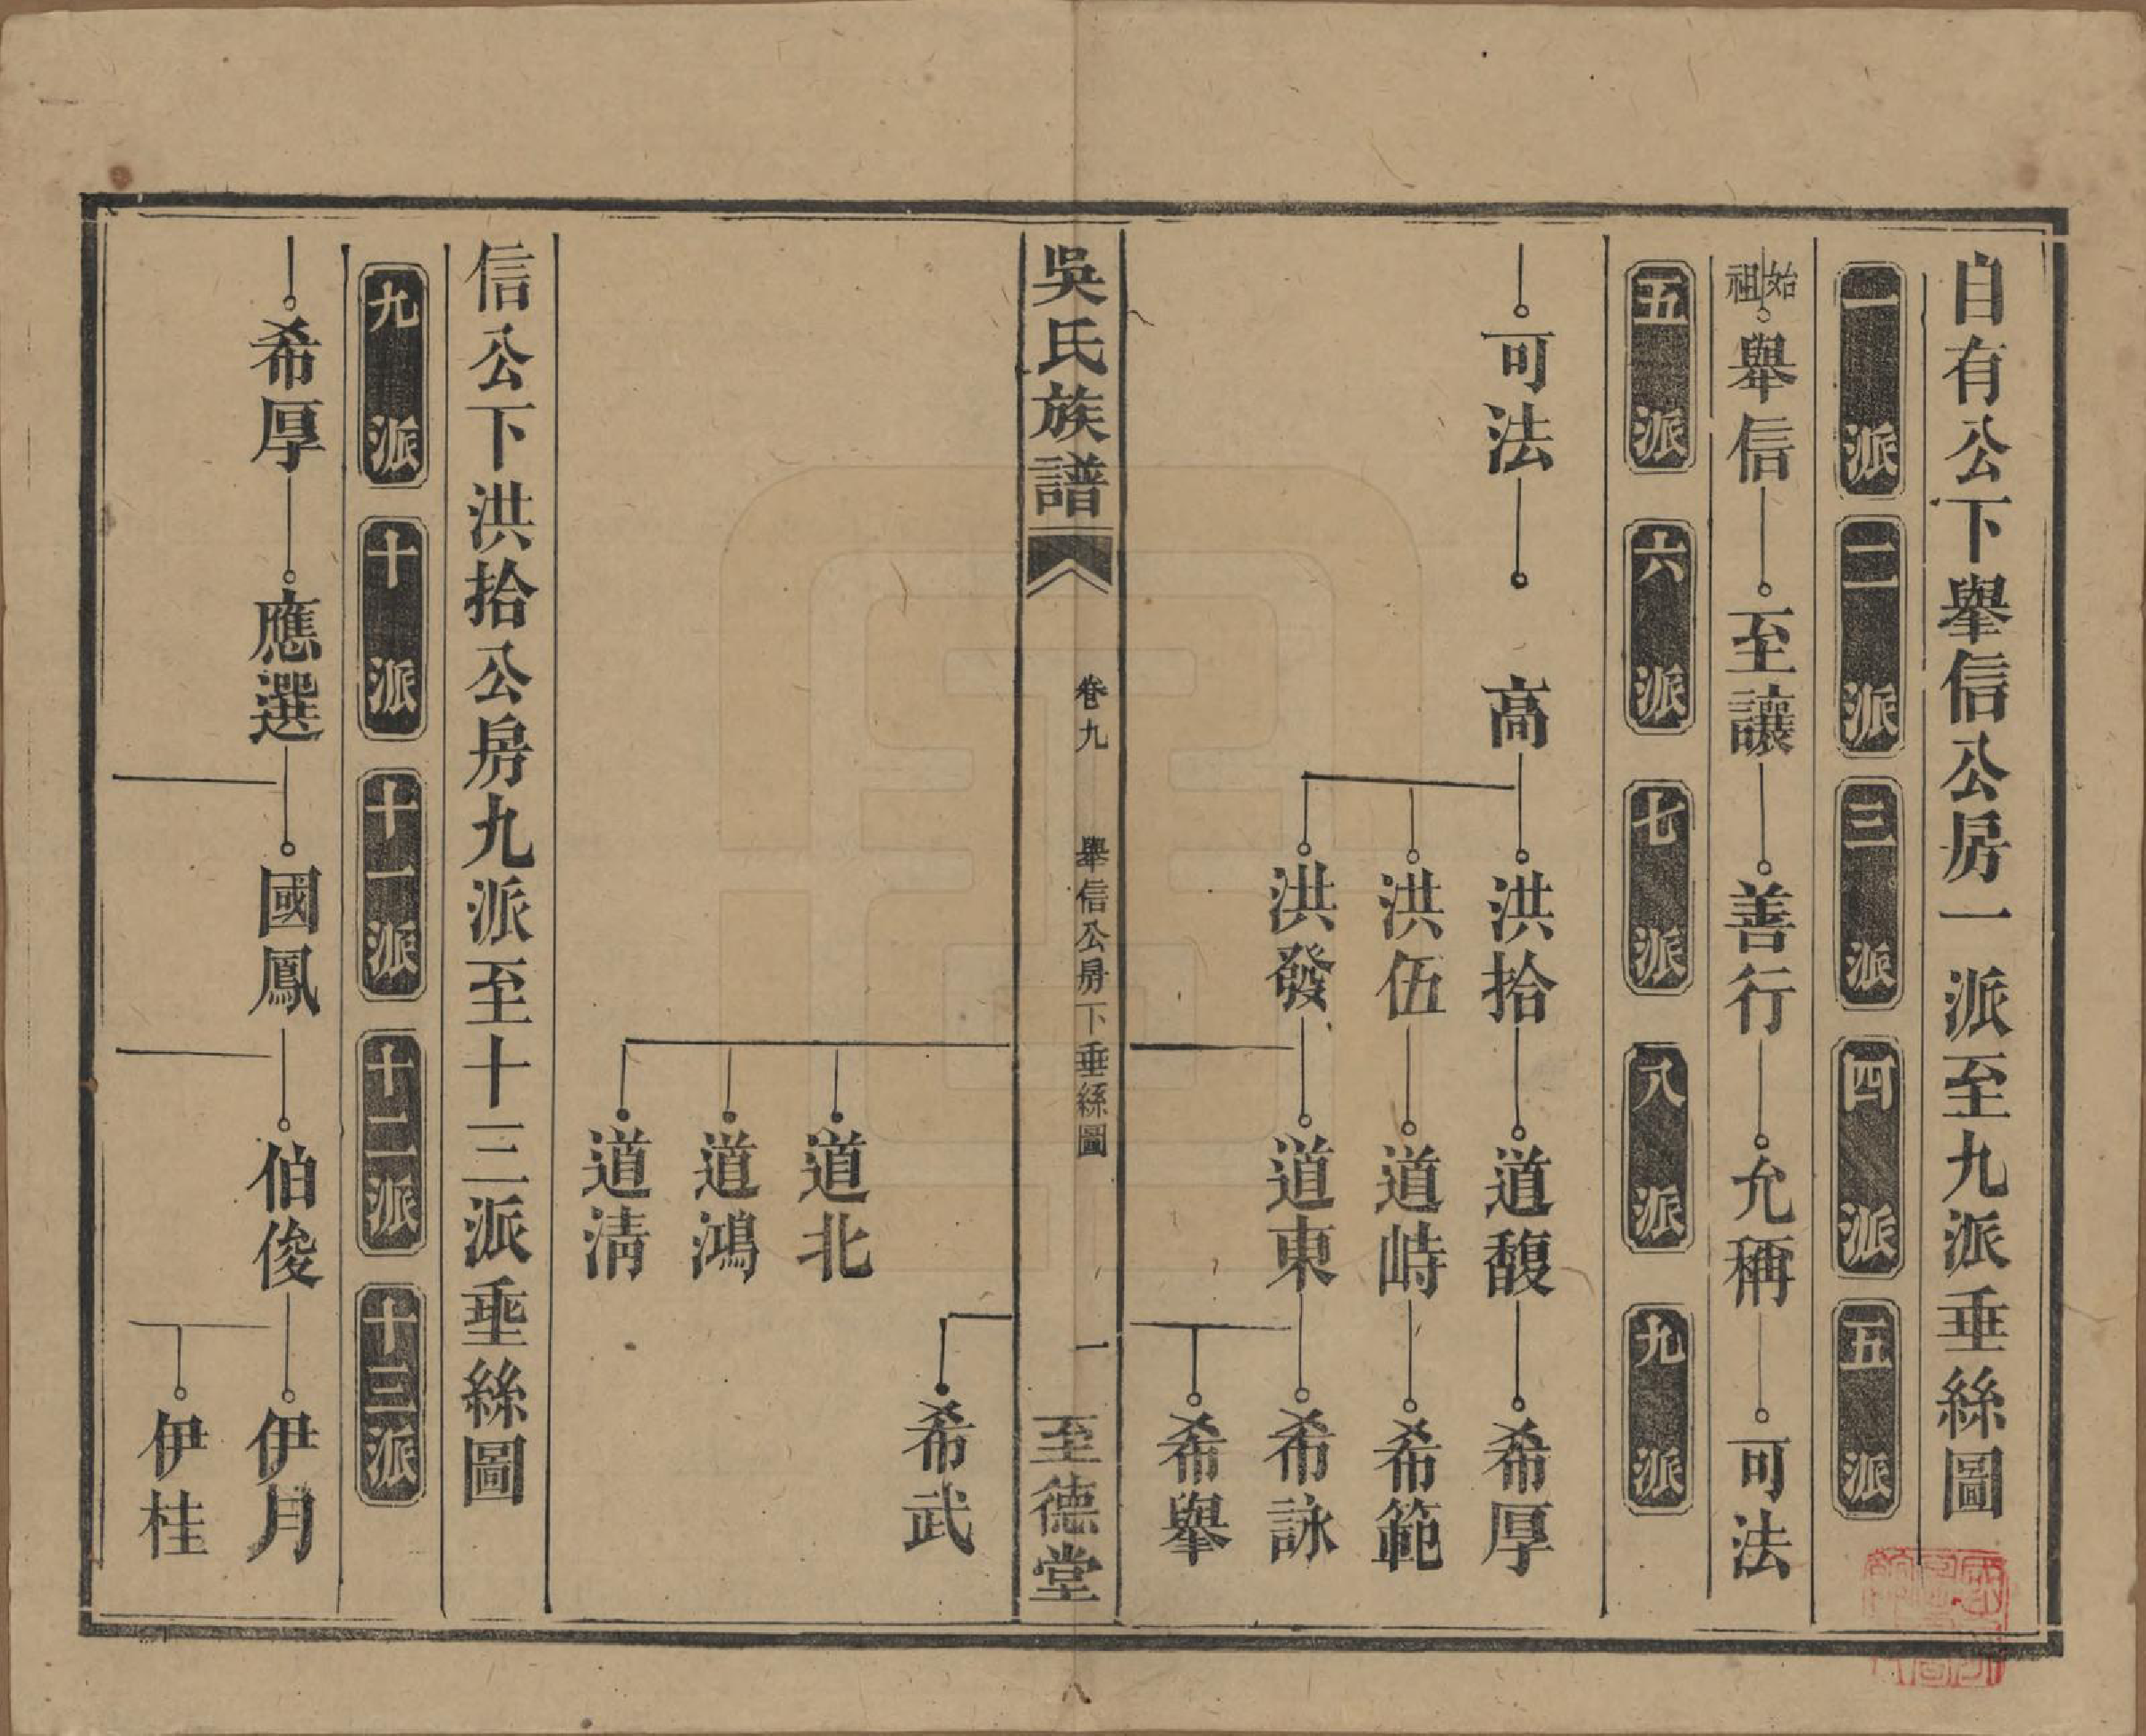 自有公下舉信公房一派至九派垂絲圖
一派 二派 三派 四派 五派
始祖 舉信 至讓 善行 允稱 可法
五派 六派 七派 八派 九派
可法 高 洪拾 道馥 希厚
洪伍 道峙 希範
洪發 道東 希詠
希舉
吳氏族譜 卷九 舉信公房下垂絲圖 一 至德堂
希武
道北
道鴻
道清
信公下洪拾公房九派至十三派垂絲圖
九派 十派 十一派 十二派 十三派
希厚 應選 國鳳 伯俊 伊月
伊桂